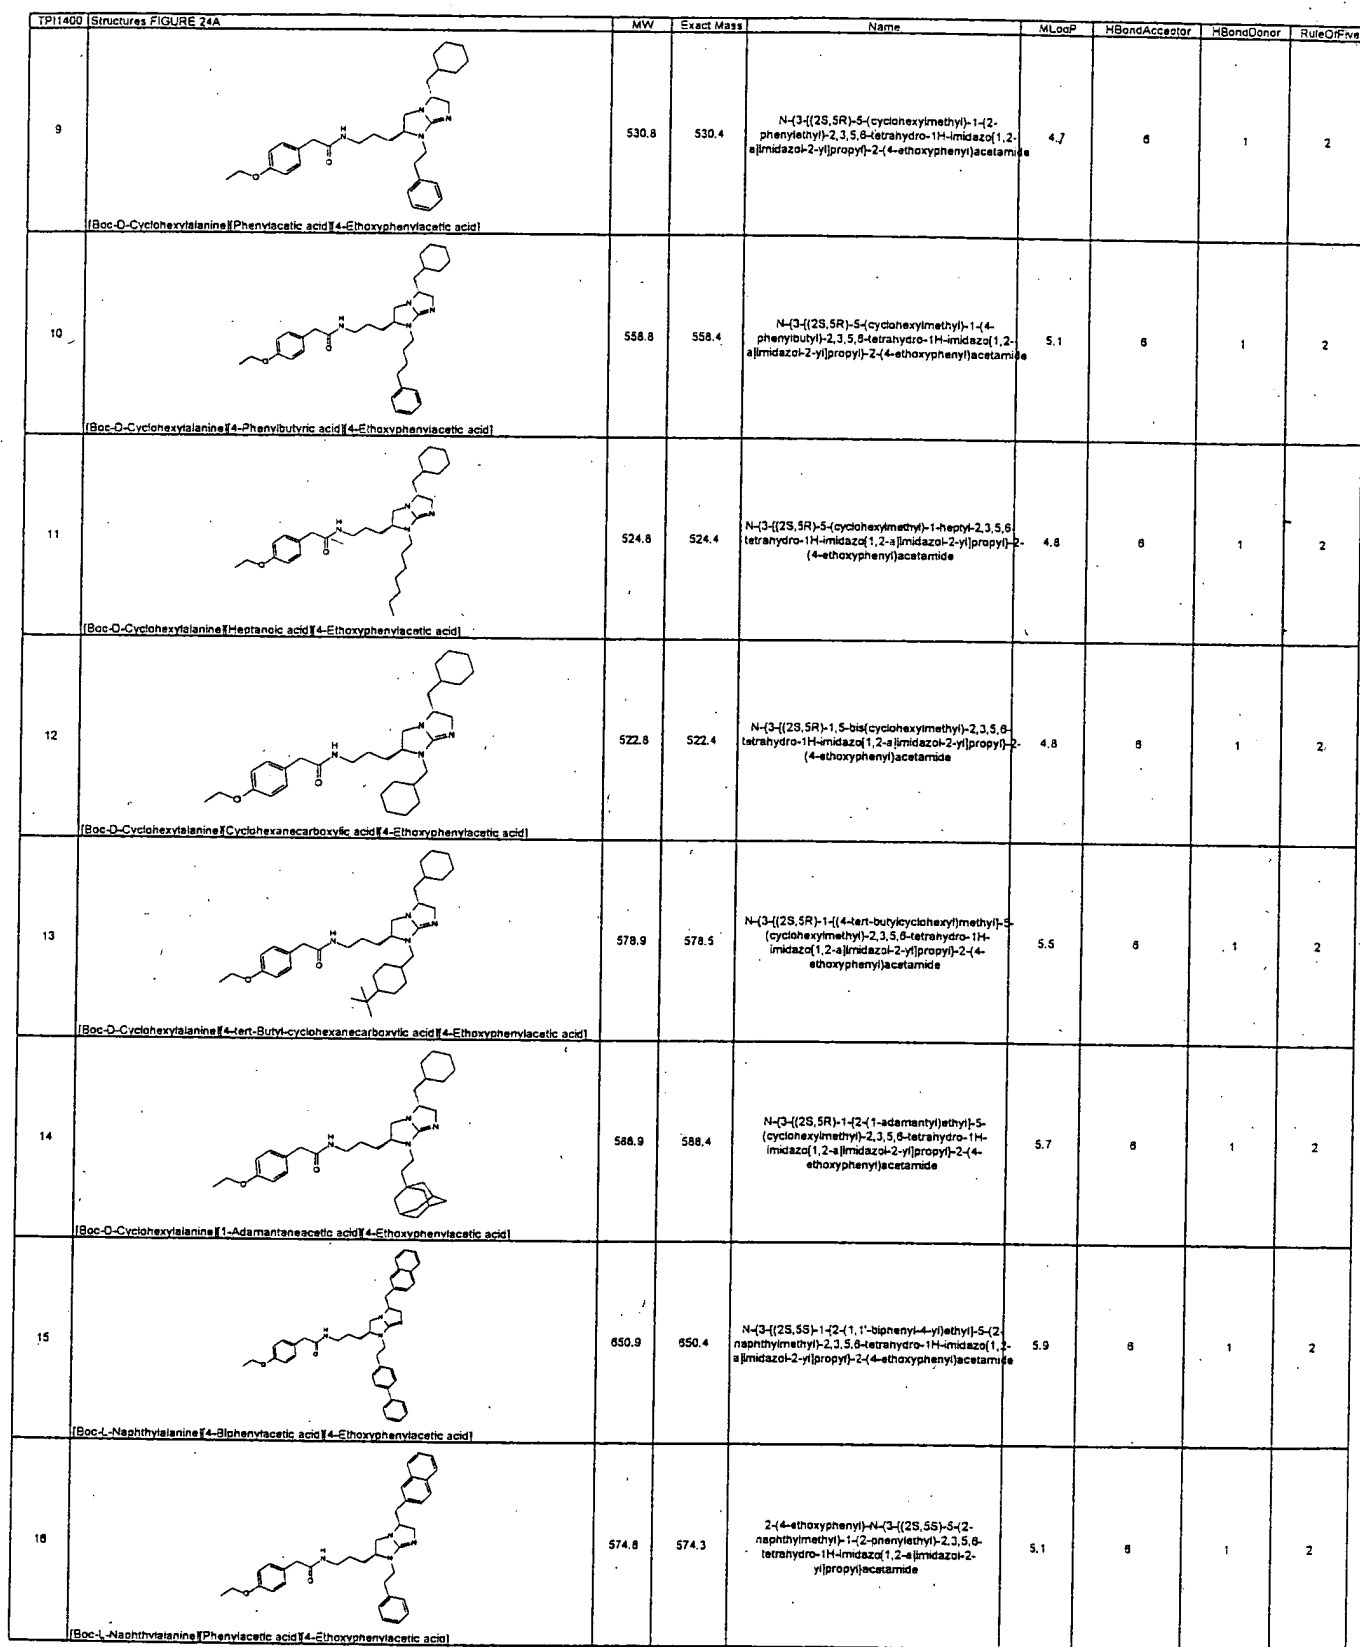 TPI1400 Structures FIGURE 24A MW Exact Mass Name MLogP HBondAcceptor HBondDonor RuleOfFive
9 530.8 530.4 4.7 6 1 2
N-{3-[(2S,5R)-5-(cyclohexylmethyl)-1-(2-
phenylethyl)-2,3,5,6-tetrahydro-1H-imidazo[1,2-
a]imidazol-2-yl]propyl}-2-(4-ethoxyphenyl)acetamide
[Boc-D-Cyclohexylalanine][Phenylacetic acid][4-Ethoxyphenylacetic acid]
10 558.8 558.4 5.1 6 1 2
N-{3-[(2S,5R)-5-(cyclohexylmethyl)-1-(4-
phenylbutyl)-2,3,5,6-tetrahydro-1H-imidazo[1,2-
a]imidazol-2-yl]propyl}-2-(4-ethoxyphenyl)acetamide
[Boc-D-Cyclohexylalanine][4-Phenylbutyric acid][4-Ethoxyphenylacetic acid]
11 524.8 524.4 4.8 6 1 2
N-{3-[(2S,5R)-5-(cyclohexylmethyl)-1-heptyl-2,3,5,6-
tetrahydro-1H-imidazo[1,2-a]imidazol-2-yl]propyl}-2-
(4-ethoxyphenyl)acetamide
[Boc-D-Cyclohexylalanine][Heptanoic acid][4-Ethoxyphenylacetic acid]
12 522.8 522.4 4.8 6 1 2
N-{3-[(2S,5R)-1,5-bis(cyclohexylmethyl)-2,3,5,6-
tetrahydro-1H-imidazo[1,2-a]imidazol-2-yl]propyl}-2-
(4-ethoxyphenyl)acetamide
[Boc-D-Cyclohexylalanine][Cyclohexanecarboxylic acid][4-Ethoxyphenylacetic acid]
13 578.9 578.5 5.5 6 1 2
N-{3-[(2S,5R)-1-[(4-tert-butylcyclohexyl)methyl]-5-
(cyclohexylmethyl)-2,3,5,6-tetrahydro-1H-
imidazo[1,2-a]imidazol-2-yl]propyl}-2-(4-
ethoxyphenyl)acetamide
[Boc-D-Cyclohexylalanine][4-tert-Butyl-cyclohexanecarboxylic acid][4-Ethoxyphenylacetic acid]
14 588.9 588.4 5.7 6 1 2
N-{3-[(2S,5R)-1-[2-(1-adamantyl)ethyl]-5-
(cyclohexylmethyl)-2,3,5,6-tetrahydro-1H-
imidazo[1,2-a]imidazol-2-yl]propyl}-2-(4-
ethoxyphenyl)acetamide
[Boc-D-Cyclohexylalanine][1-Adamantaneacetic acid][4-Ethoxyphenylacetic acid]
15 650.9 650.4 5.9 6 1 2
N-{3-[(2S,5S)-1-[2-(1,1'-biphenyl-4-yl)ethyl]-5-(2-
naphthylmethyl)-2,3,5,6-tetrahydro-1H-imidazo[1,2-
a]imidazol-2-yl]propyl}-2-(4-ethoxyphenyl)acetamide
[Boc-L-Naphthylalanine][4-Biphenylacetic acid][4-Ethoxyphenylacetic acid]
16 574.8 574.3 5.1 6 1 2
2-(4-ethoxyphenyl)-N-{3-[(2S,5S)-5-(2-
naphthylmethyl)-1-(2-phenylethyl)-2,3,5,6-
tetrahydro-1H-imidazo[1,2-a]imidazol-2-
yl]propyl}acetamide
[Boc-L-Naphthylalanine][Phenylacetic acid][4-Ethoxyphenylacetic acid]